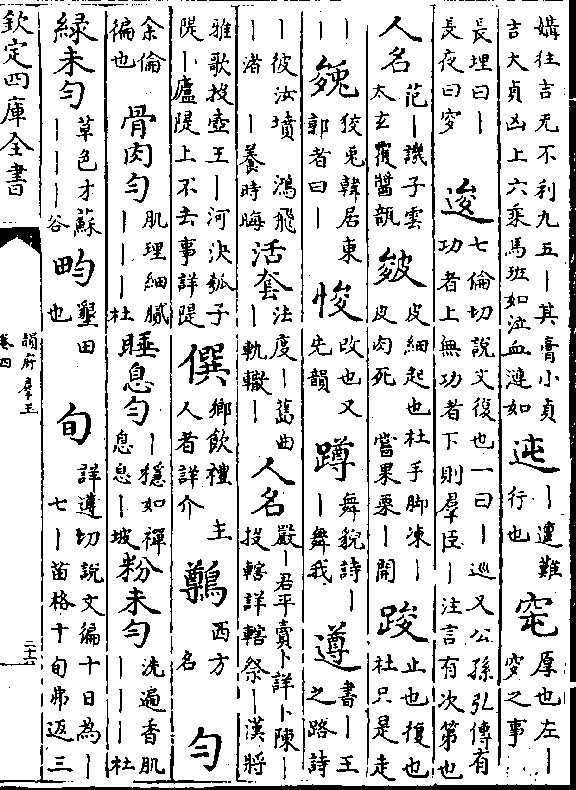 媾往吉无不利九五｜其膏小貞
吉大貞凶上六乘馬班如泣血漣如
迍
｜邅難
行也
窀
厚也左｜
穸之事
長埋曰｜
長夜曰穸
逡
七倫切說文復也一曰｜巡又公孫弘傳有
功者上無功者下則羣臣｜注言有次第也
人名
范｜譏子雲
太玄覆醬瓿
皴
皮細起也杜手脚凍｜
皮肉死　當果栗｜開
踆
止也復也
社只是走
｜
㕙
狡兎韓居東
郭者曰｜
悛
改也又
先韻
蹲
舞貌詩｜
｜舞我
遵
書｜王
之路詩
｜彼汝墳　鴻飛
｜渚　｜養時晦
活套
法度｜蕭曲
｜軌轍｜
人名
嚴｜君平賣卜詳卜陳｜
投轄詳轄祭｜漢將
雅歌投壺王｜河決瓠子
隄｜廬隄上不去事詳隄
僎
鄉飲禮　主
人者詳介
鶉
西方
名
勻
余倫
徧也
骨肉勻
肌理細膩
｜｜｜杜
睡息勻
｜穩如禪
息息｜坡
粉未勻
洗遍香肌
｜｜｜杜
綠未勻
草色才蘇
｜｜｜谷
畇
墾田
也
旬
詳遵切說文徧十日為｜
七｜苗格十旬弗返三
欽定四庫全書
韻府羣玉
卷四
二十六